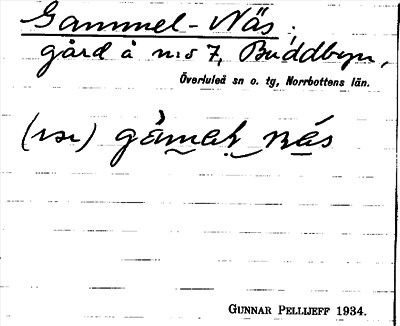 Gammel-Näs;
gård å n:o 7, Buddbyn,
Överluleå sn o. tg, Norrbottens län.
GUNNAR PELLIJEFF 1934.